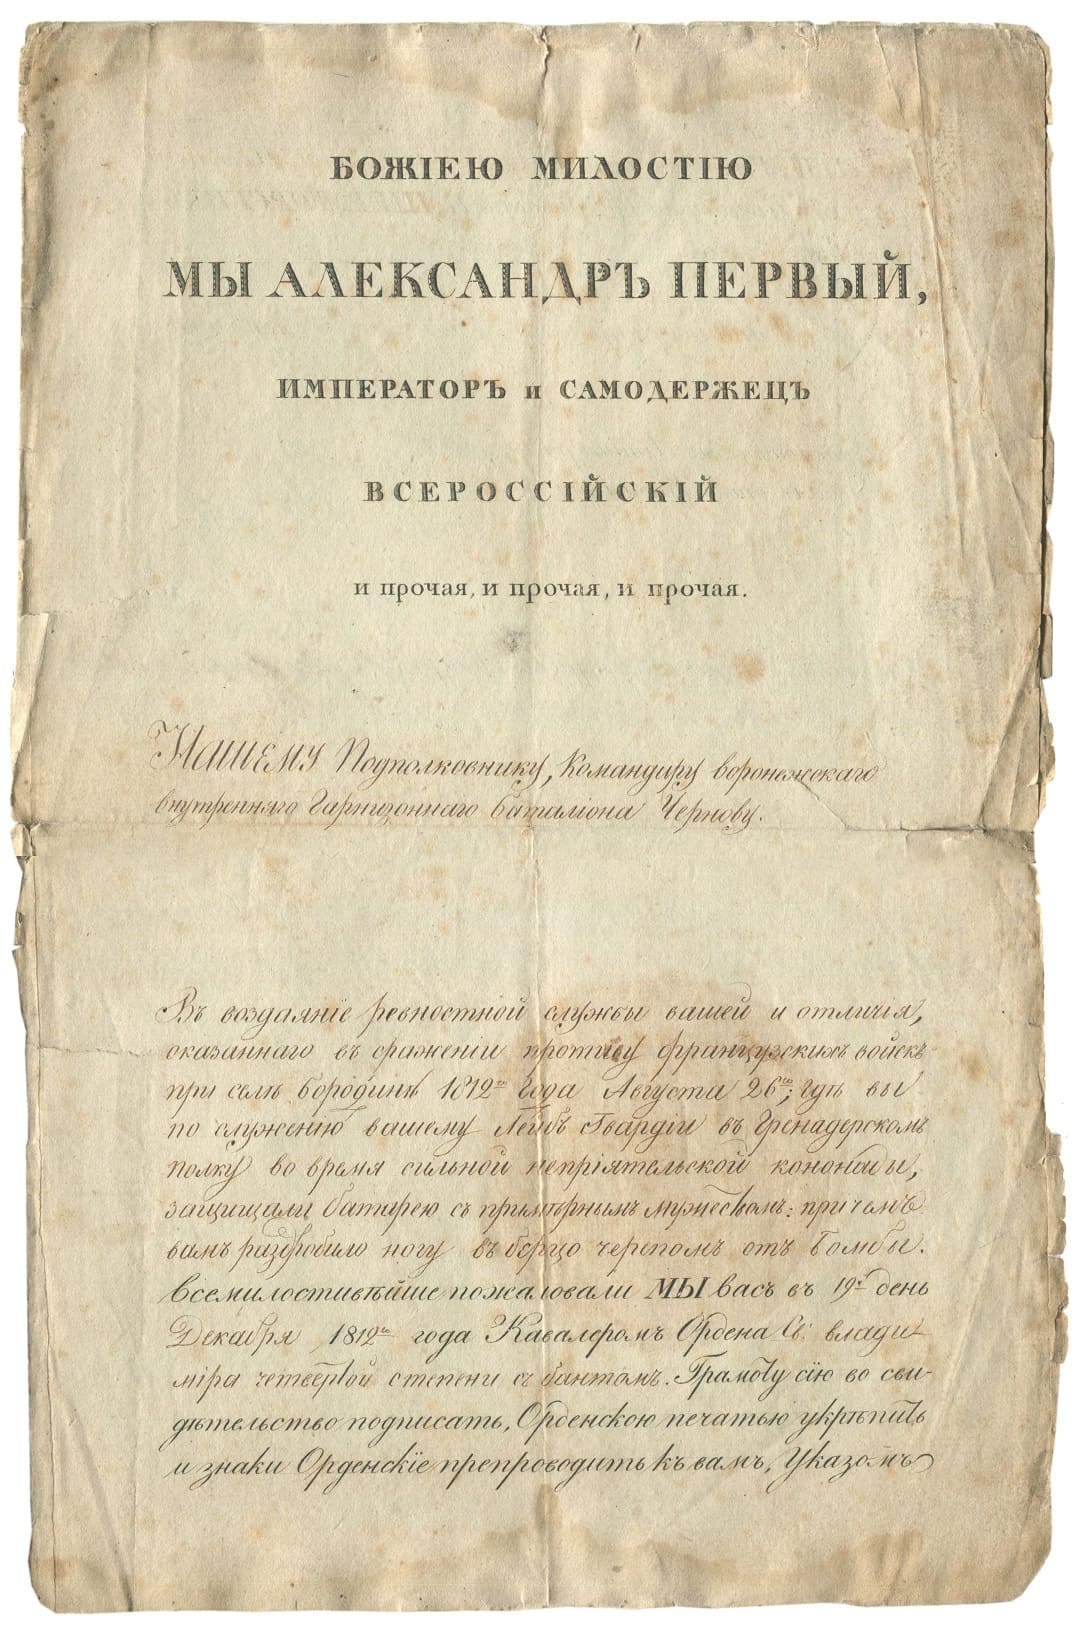 БОЖІЕЮ МИЛОСТІЮ
МЫ АЛЕКСАНДРЪ ПЕРВЫЙ,
ИМПЕРАТОРЪ и САМОДЕРЖЕЦЪ
ВСЕРОССІЙСКІЙ
и прочая, и прочая, и прочая.
Нашему Подполковнику, Командиру воронежскаго
внутренняго Гарнизоннаго баталіона Чернову.
Въ воздаяніе ревностной службы вашей и отличія,
оказаннаго въ сраженіи противу французскихъ войскъ
при селѣ бородинѣ 1812го года Августа 26го; гдѣ вы
по служенію вашему Лейбъ Гвардіи въ Гренадерскомъ
полку во время сильной непріятельской кононады,
защищали батарею съ примѣрнымъ мужествомъ: причемъ
вамъ раздробило ногу въ берцо черепомъ отъ бомбы.
Всемилостивѣйше пожаловали МЫ васъ въ 19й день
Декабря 1812го года Кавалеромъ Ордена Св. влади-
міра четвертой степени съ бантомъ. Грамоту сію во сви-
дѣтельство подписать, Орденскою печатью укрѣпить
и знаки Орденскіе препроводить къ вамъ, Указомъ